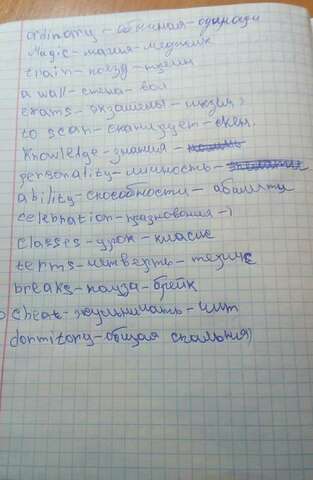 ordinary - обычная - одинари
Magic - магия - меджик
train - поезд - трейн
a wall - стена - вол
exams - экзамены -
to scan - сканирует - скен.
Knowledge - знания -
personality - личность -
ability - способности - абилити
celebration - празнования -
classes - урок - класис
terms - четверть - термс
breaks - пауза - брейк
cheat - жульничать - чит
dormitory - общая спальня)